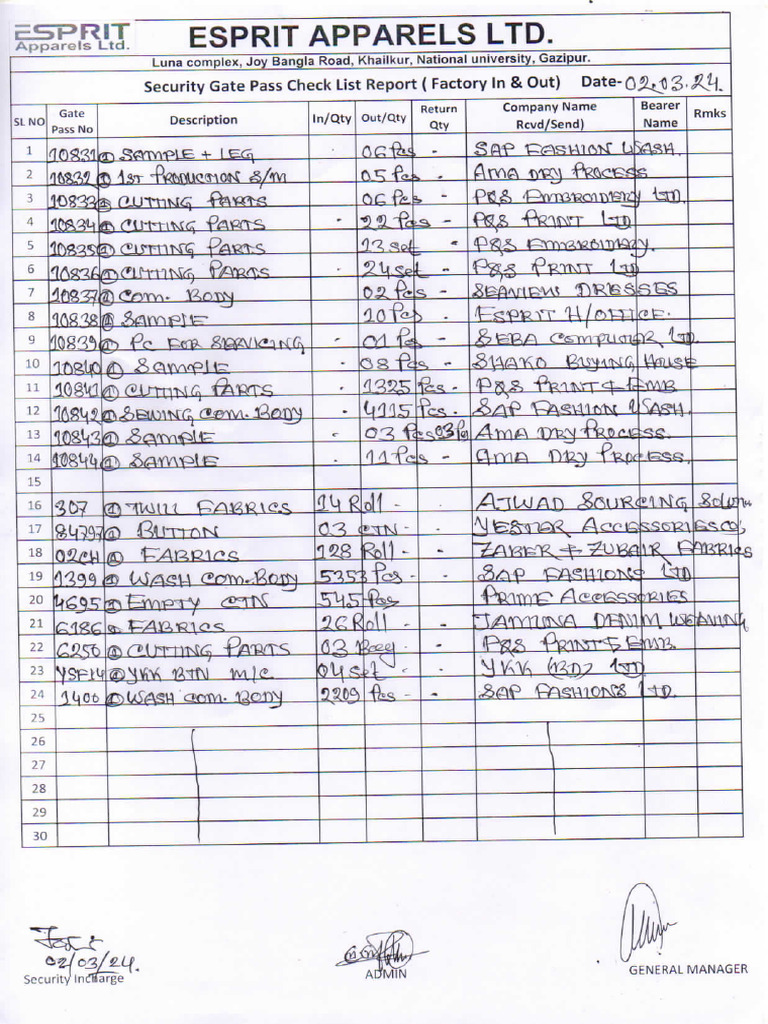 ESPRIT
Apparels Ltd.
ESPRIT APPARELS LTD.
Luna complex, Joy Bangla Road, Khailkur, National university, Gazipur.
Security Gate Pass Check List Report ( Factory In & Out) Date- 02.03.24.
SL NO Gate Pass No Description In/Qty Out/Qty Return Qty Company Name Rcvd/Send) Bearer Name Rmks
1 10831 SAMPLE + LEG 06 Pcs - SAP FASHION WASH.
2 10832 1ST PRODUCTION S/M 05 Pcs - AMA DRY PROCESS
3 10833 CUTTING PARTS 06 Pcs - P&S EMBROIDARY LTD.
4 10834 CUTTING PARTS - 22 Pcs - P&S PRINT LTD
5 10835 CUTTING PARTS - 13 set - P&S EMBROIDARY.
6 10836 CUTTING PARTS - 24 set - P&S PRINT LTD
7 10837 COM. BODY 02 Pcs - SEAVIEW DRESSES
8 10838 SAMPLE 10 Pcs - ESPRIT H/OFFICE.
9 10839 PC FOR SERVICING - 01 Pc - SEBA COMPUTER LTD.
10 10840 SAMPLE - 08 Pcs - SHAKO BUYING HOUSE
11 10841 CUTTING PARTS - 1325 Pcs - P&S PRINT & EMB
12 10842 SEWING COM. BODY - 4115 Pcs - SAP FASHION WASH.
13 10843 SAMPLE - 03 Pcs 03 Pcs AMA DRY PROCESS.
14 10844 SAMPLE - 11 Pcs - AMA DRY PROCESS.
15
16 307 TWILL FABRICS 14 Roll - AJWAD SOURCING
17 84797 BUTTON 03 CTN - - YESTER ACCESSORIES CO,
18 02CH FABRICS 128 Roll - - ZABER + ZUBAIR FABRICS
19 1399 WASH COM. BODY 5353 Pcs - SAP FASHIONS LTD
20 4695 EMPTY CTN 545 Pcs - PRIME ACCESSORIES
21 6186 FABRICS 26 Roll - - JAMUNA DENIM WEAVING
22 6250 CUTTING PARTS 03 - P&S PRINT & EMB.
23 YKK BTN M/C 04 Set - - YKK (BD) LTD
24 1400 WASH COM. BODY 2209 Pcs - - SAP FASHIONS LTD.
25
26
27
28
29
30
02/03/24.
Security Incharge ADMIN GENERAL MANAGER